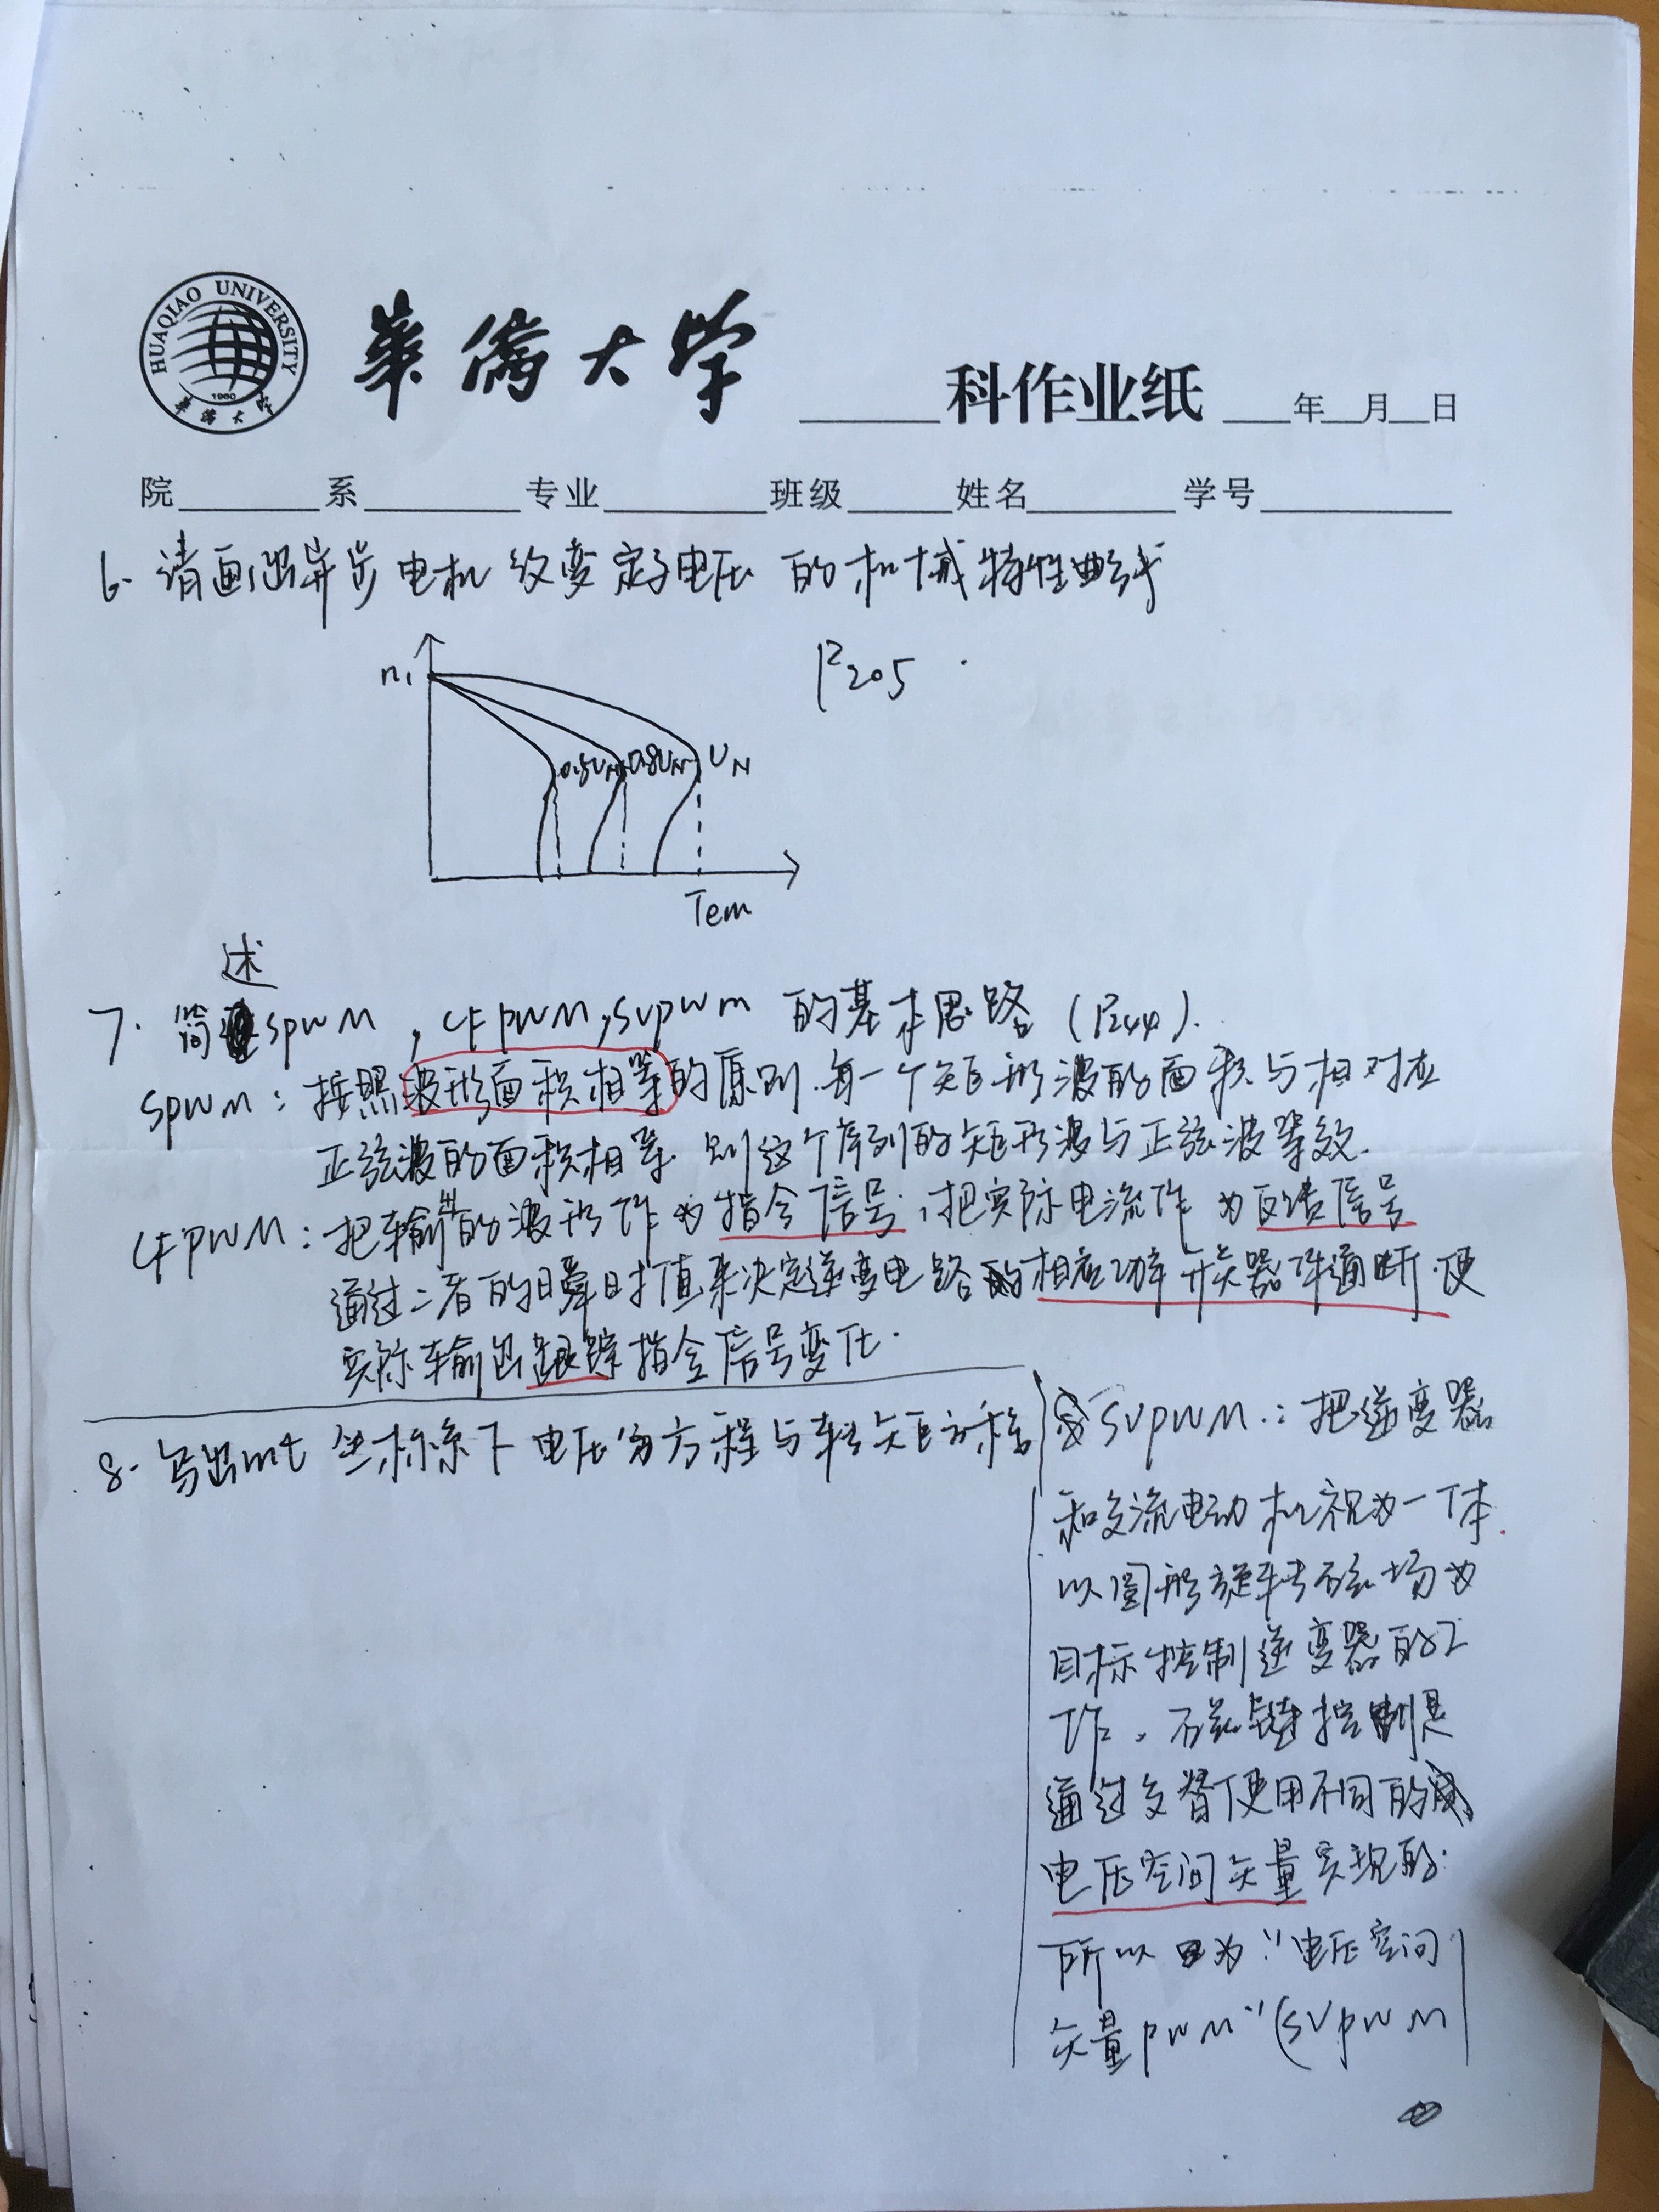 HUAQIAO UNIVERSITY
1960
华侨大学
華僑大学
科作业纸 年 月 日
院 系 专业 班级 姓名 学号
6. 请画出异步电机改变定子电压的机械特性曲线
P205
n₁
0.5UN 0.8UN UN
Tem
述
7. 简 SPWM, CFPWM, SVPWM 的基本思路 (P244).
SPWM: 按照波形面积相等的原则.每一个矩形波的面积与相对应
正弦波的面积相等.则这个序列的矩形波与正弦波等效.
CFPWM: 把输出的波形作为指令信号,把实际电流作为反馈信号
通过二者的瞬时值来决定逆变电路的相应功率开关器件通断.使
实际输出跟踪指令信号变化.
8. 写出mt坐标系下电压方程与转矩方程
SVPWM.: 把逆变器
和交流电动机视为一体.
以圆形旋转磁场为
目标控制逆变器的工
作,磁链控制是
通过交替使用不同的
电压空间矢量实现的.
所以 为"电压空间
矢量PWM"(SVPWM